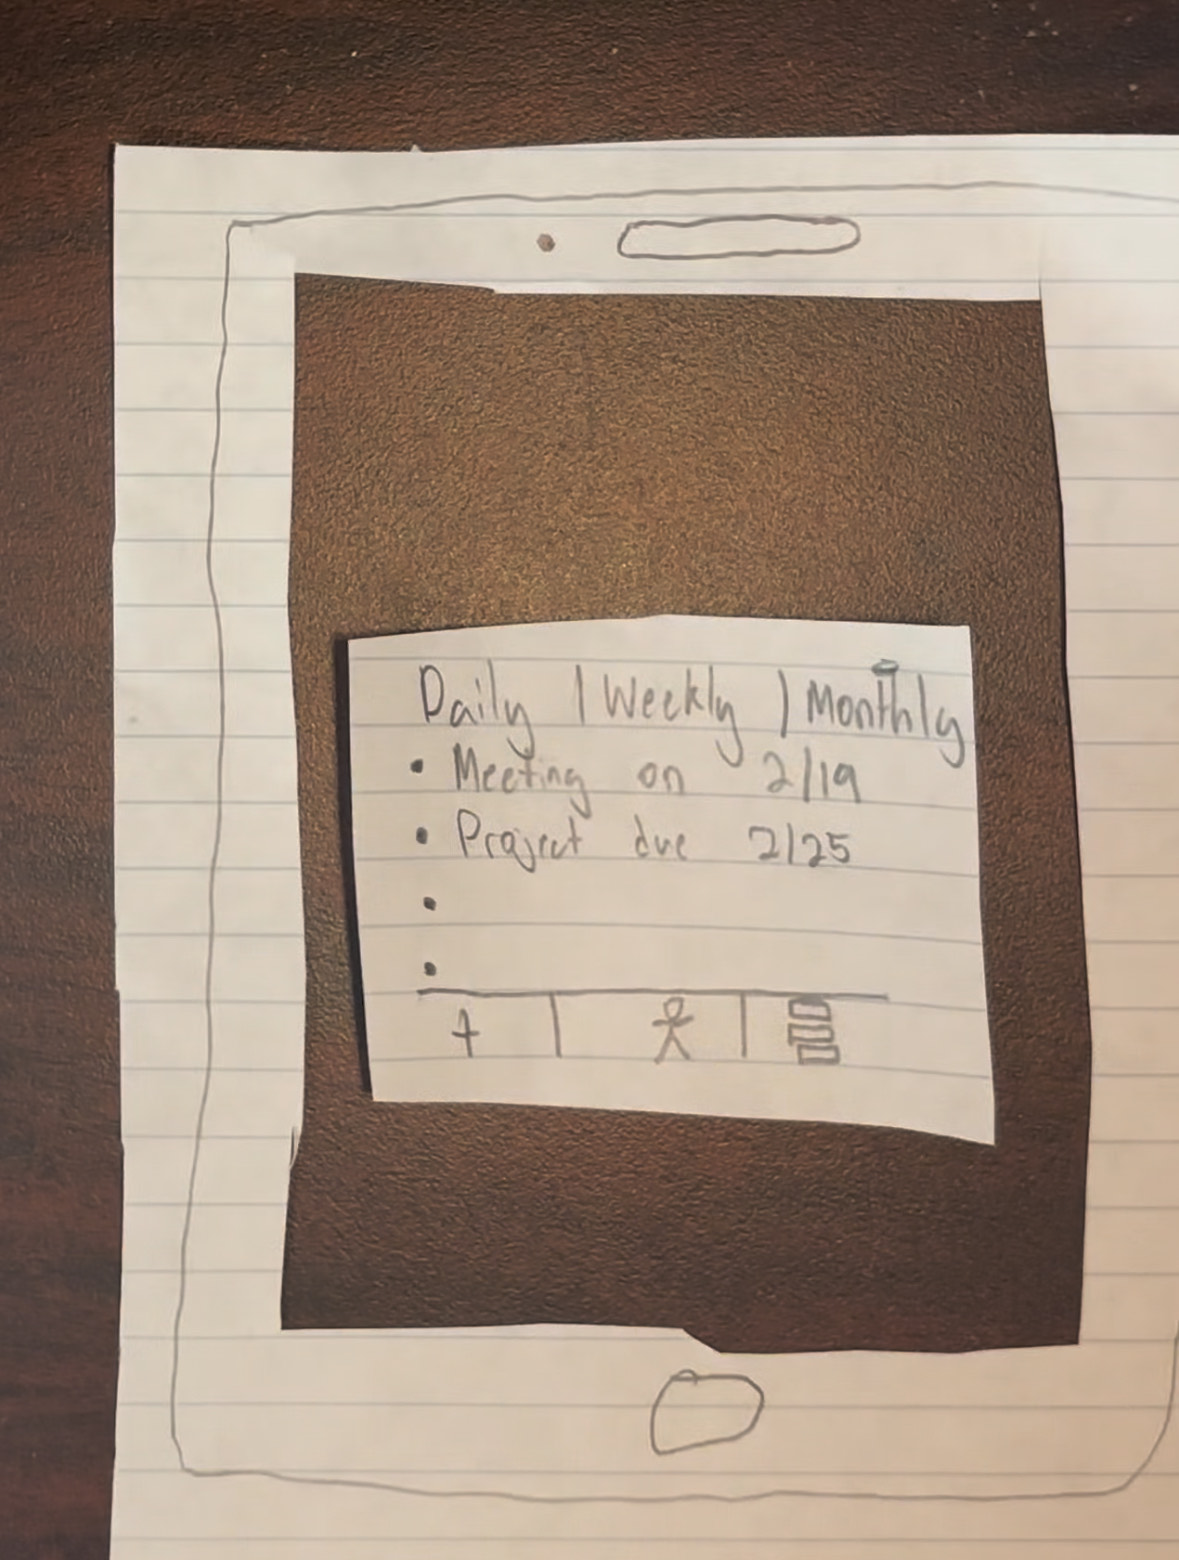 Daily | Weekly | Monthly
• Meeting on 2/19
• Project due 2/25
•
•
+ | |